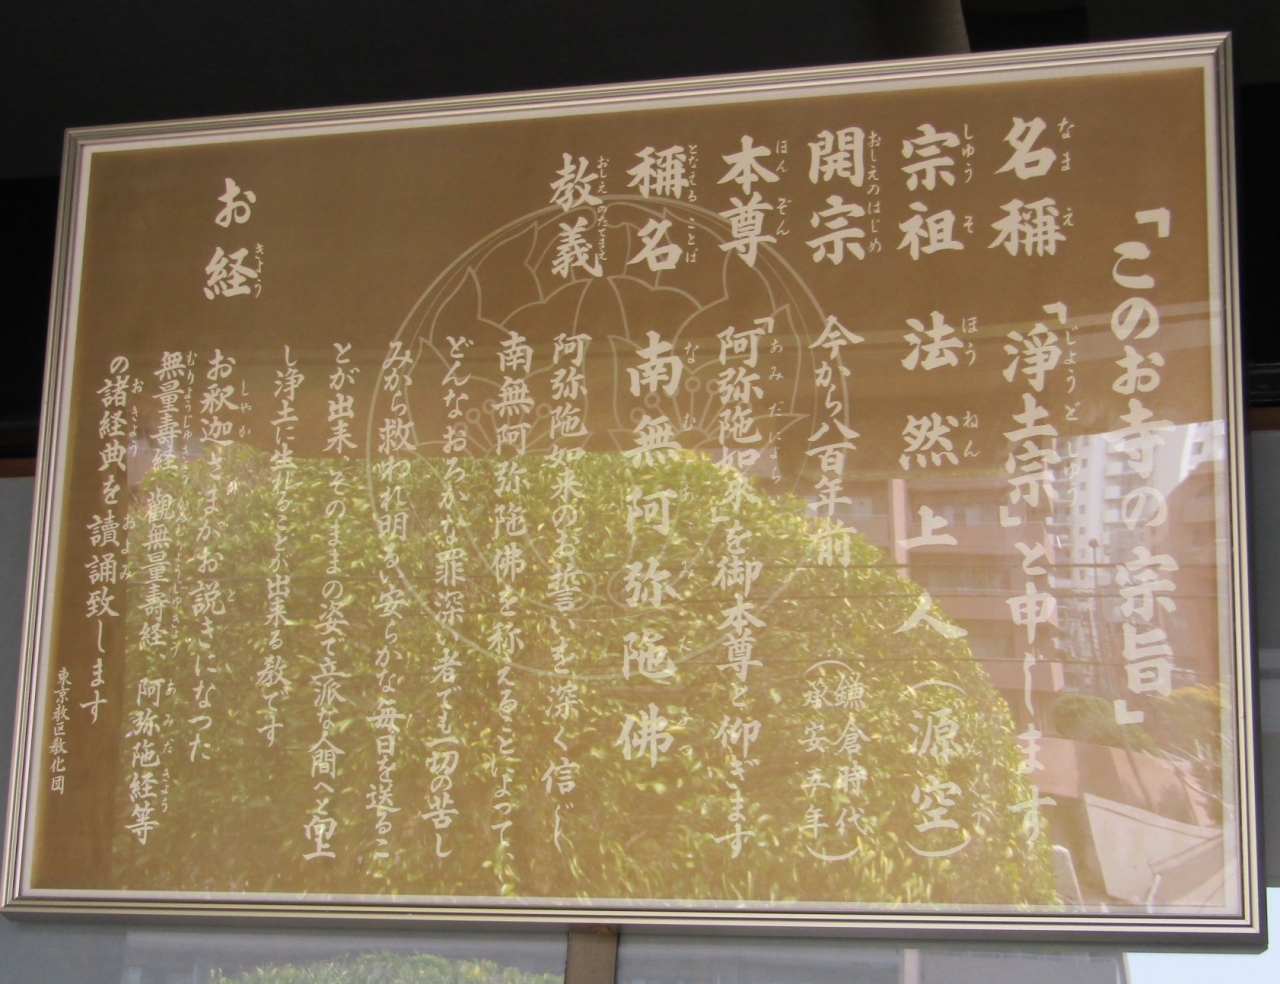 「このお寺の宗旨」
名稱 「淨土宗」と申しします
宗祖 法然上人(源空)
開宗 今から八百年前(鎌倉時代 承安五年)
本尊 「阿弥陁如來」を御本尊と仰ぎます
稱名 南無阿弥陁佛
教義 阿弥陁如来のお誓いを深く信じ
南無阿弥陁佛を称えることによって、
どんなおろかな罪深い者でも一切の苦し
みから救われ明るい安らかな毎日を送るこ
とが出来、そのままの姿で立派な人間へと向上
し浄土に生れることが出来る教です
お経 お釈迦さまがお説きになった
無量壽経、觀無量壽経、阿弥陁経等
の諸経典を讀誦致します
東京教区教化団